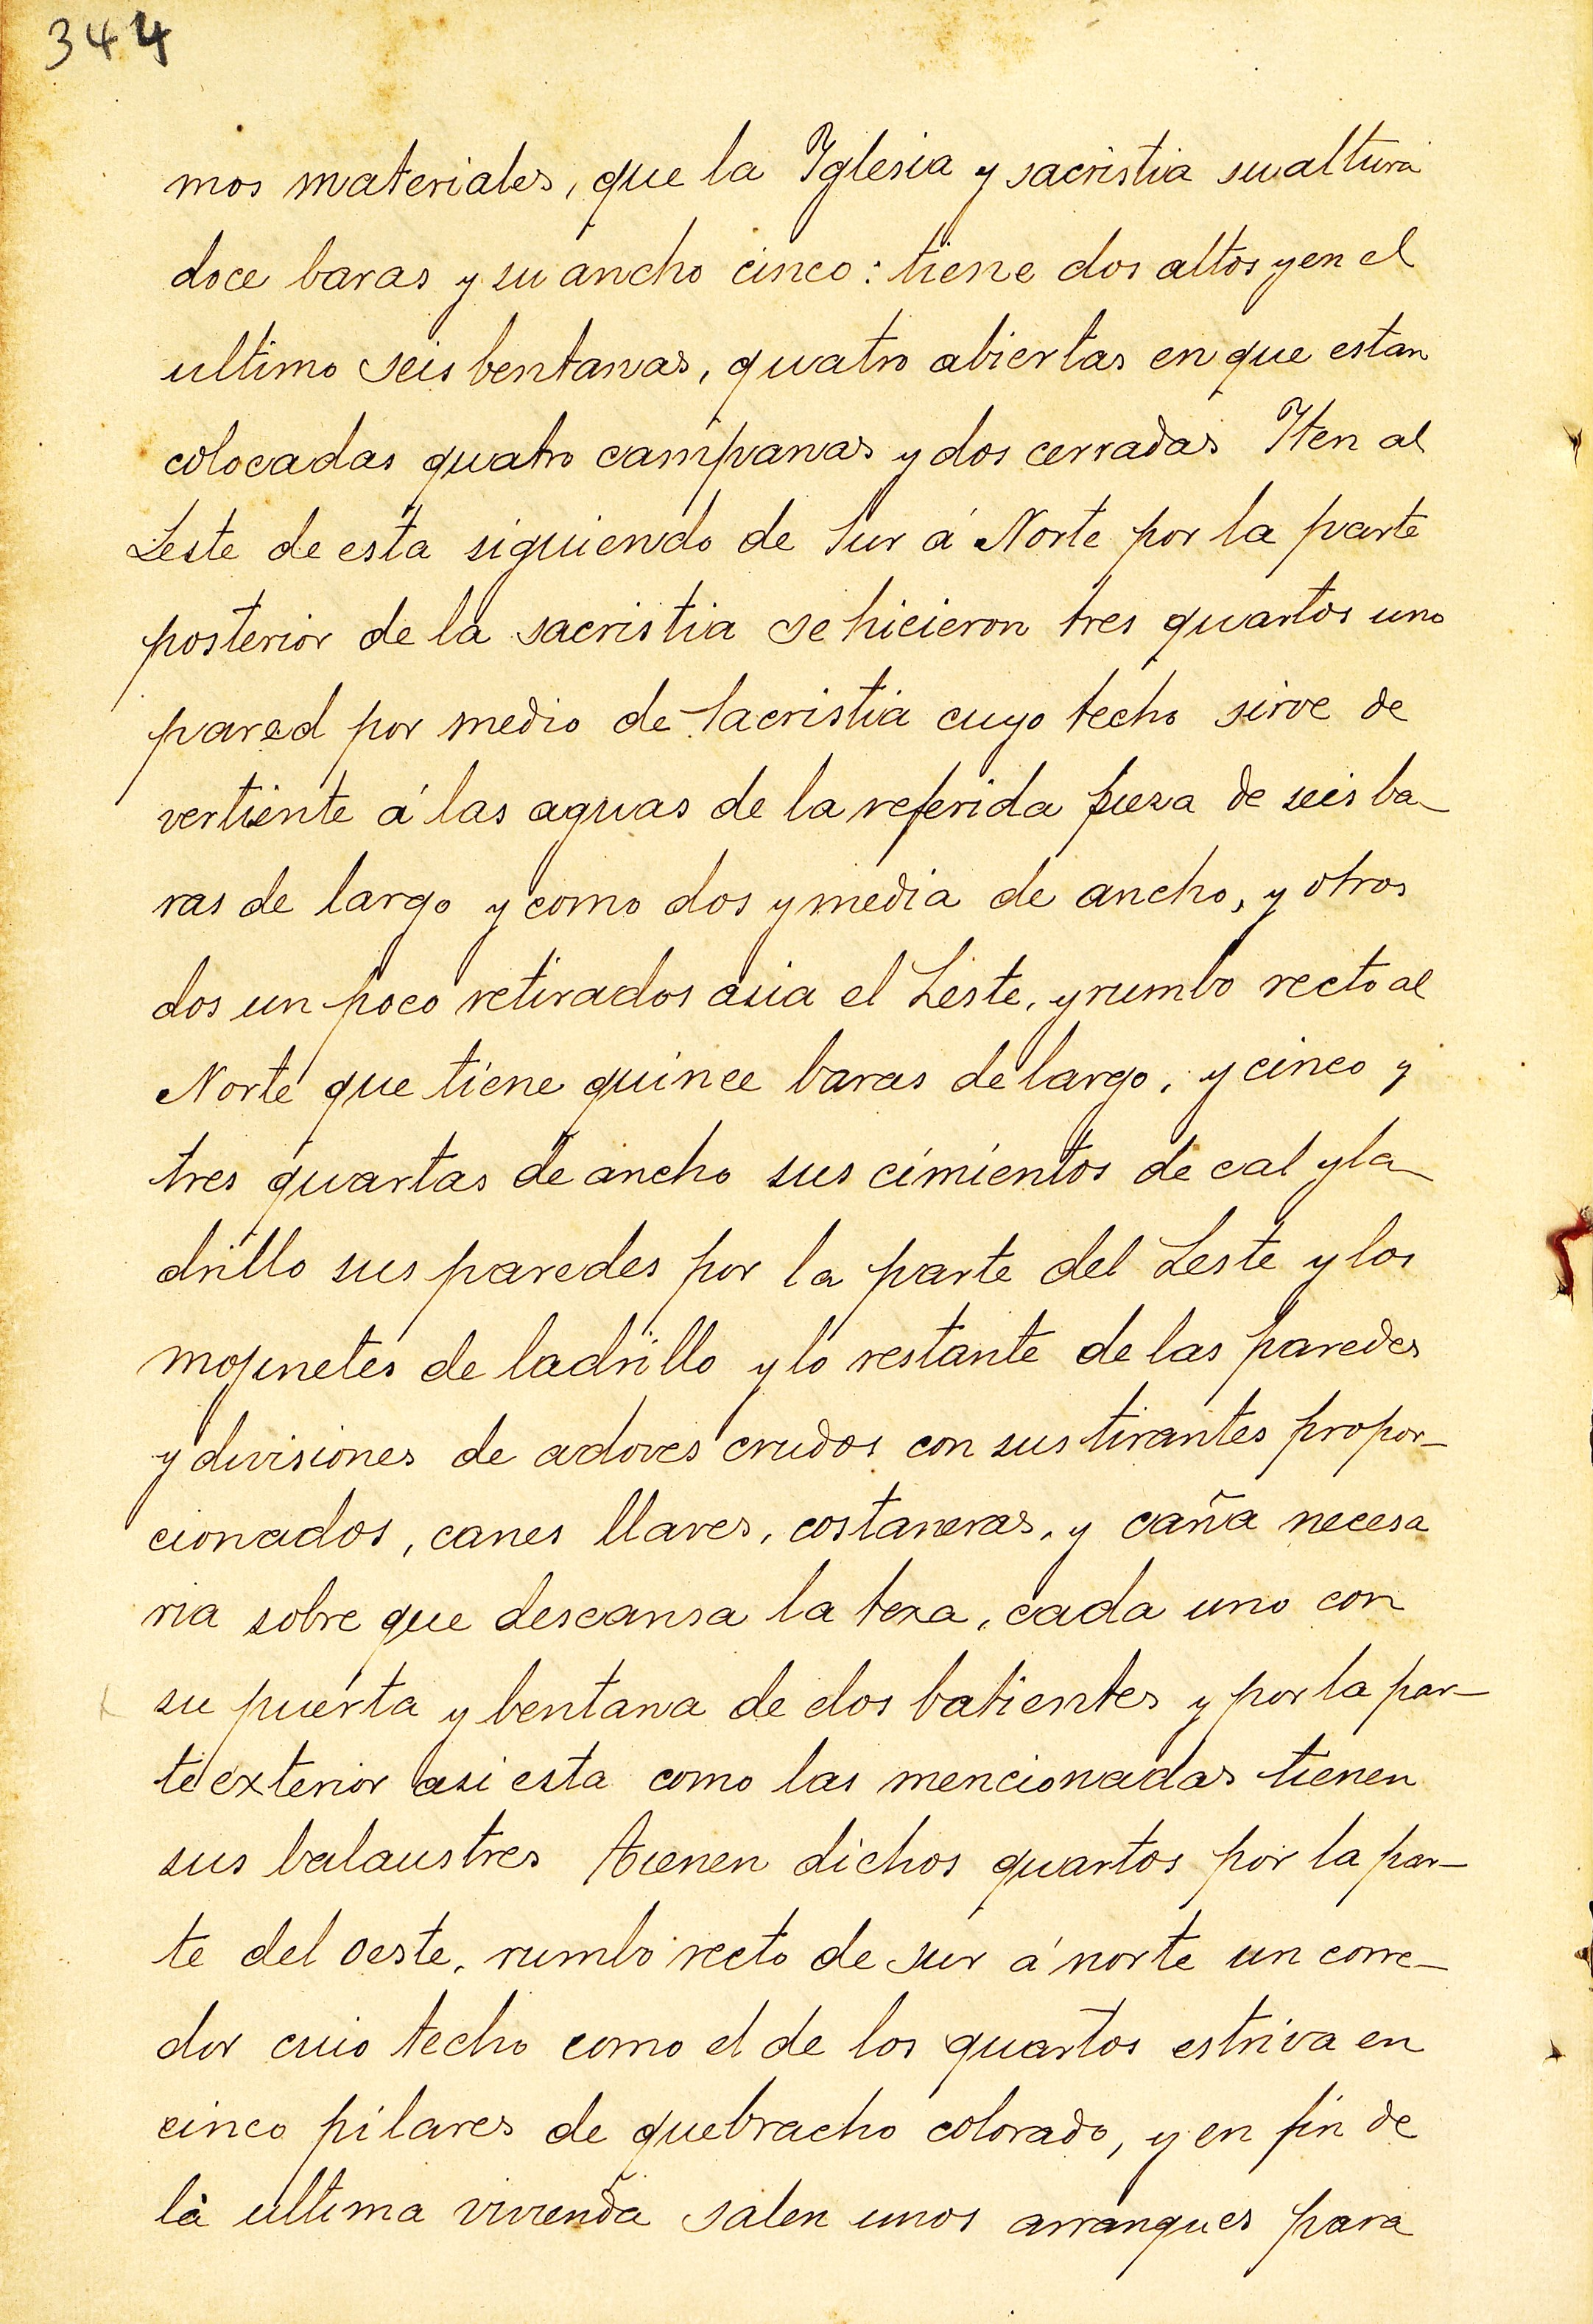 344
mos materiales, que la Yglesia y sacristia su altura
doce baras y su ancho cinco: tiene dos altos y en el
ultimo seis bentanas, quatro abiertas en que estan
colocadas quatro campanas y dos cerradas Yten al
Leste de esta siguiendo de Sur á Norte por la parte
posterior de la sacristia se hicieron tres quartos uno
pared por medio de Sacristia cuyo techo sirve de
vertiente á las aguas de la referida pieza de seis ba-
ras de largo y como dos y media de ancho, y otros
dos un poco retirados asia el Leste, y rumbo recto al
Norte que tiene quince baras de largo, y cinco y
tres quartas de ancho sus cimientos de cal y la-
drillo sus paredes por la parte del Leste y los
mojinetes de ladrillo y lo restante de las paredes
y divisiones de adoves crudos con sus tirantes propor-
cionados, canes llaves, costaneras, y caña necesa
ria sobre que descansa la texa, cada uno con
su puerta y bentana de dos batientes y por la par-
te exterior asi esta como las mencionadas tienen
sus balaustres tienen dichos quartos por la par-
te del oeste, rumbo recto de sur á norte un corre-
dor cuio techo como el de los quartos estriva en
cinco pilares de quebracho colorado, y en fin de
la ultima vivienda salen unos arranques para